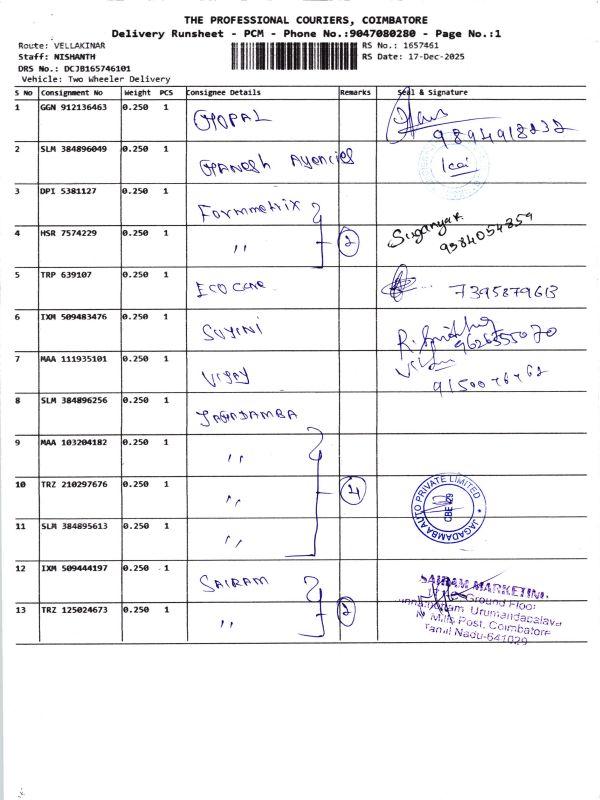 THE PROFESSIONAL COURIERS, COIMBATORE
Delivery Runsheet - PCM - Phone No.:9047080280 - Page No.:1
Route: VELLAKINAR
RS No.: 1657461
Staff: NISHANTH
RS Date: 17-Dec-2025
DRS No.: DCJB165746101
Vehicle: Two Wheeler Delivery
S No Consignment No Weight PCS Consignee Details Remarks Seal & Signature
1 GGN 912136463 0.250 1 GOPAL
9894918232
2 SLM 384896049 0.250 1 GANESH Agencies
3 DPI 5381127 0.250 1 Formmetrix
4 HSR 7574229 0.250 1 〃 2 Suganya.k
9384054859
5 TRP 639107 0.250 1 ECO CARE 7395879613
6 IXM 509483476 0.250 1 SUYINI
7 MAA 111935101 0.250 1 VIJAY
8 SLM 384896256 0.250 1 JAGADAMBA
9 MAA 103204182 0.250 1 〃
10 TRZ 210297676 0.250 1 〃 4 JAGADAMBAAUTO PRIVATE LIMITED
11 SLM 384895613 0.250 1 〃
12 IXM 509444197 0.250 1 SAIRAM SAIRAM MARKETING
Ground Floor
13 TRZ 125024673 0.250 1 〃 2 Urumandacalava
Mills Post, Coimbatore
Tamil Nadu-641029